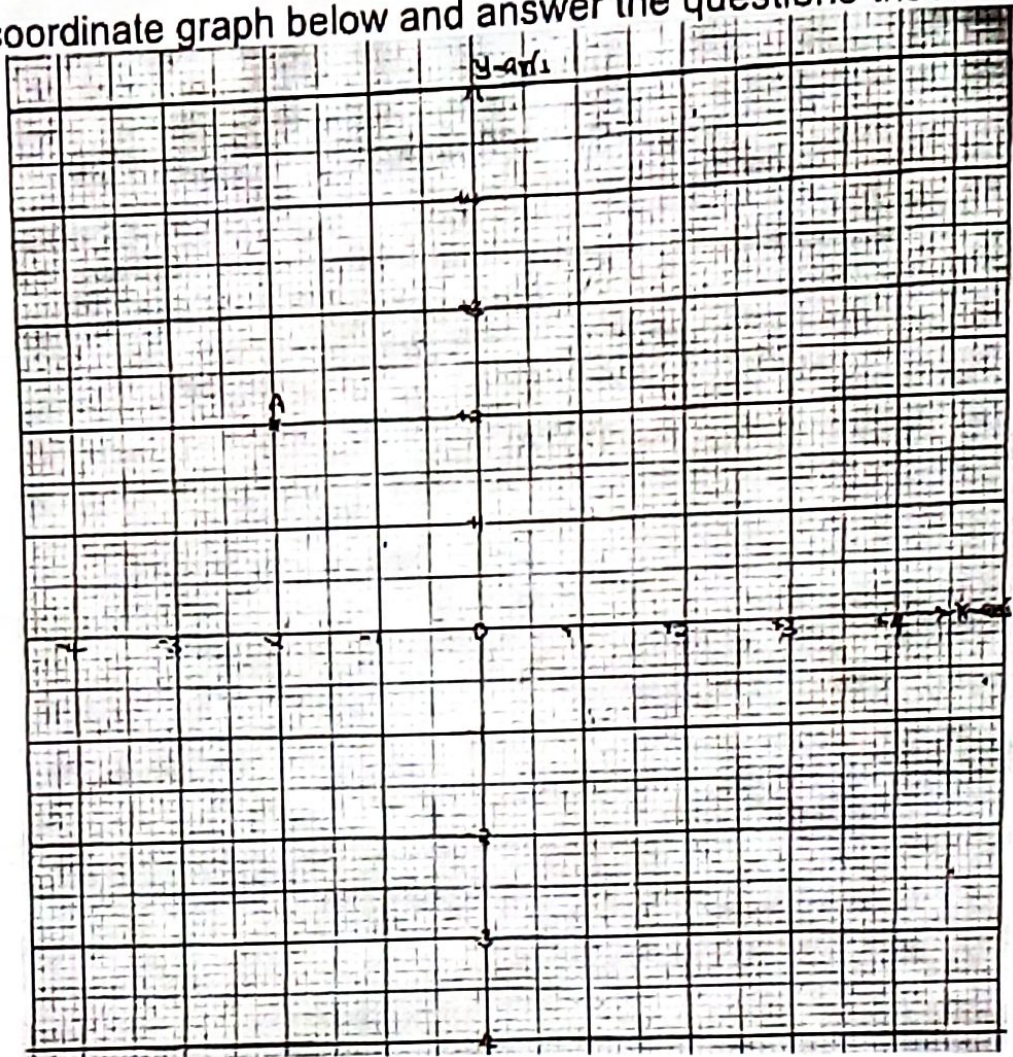 coordinate graph below and answer the questions
y-axis
+4
+3
A
+2
+1
-4 -3 -2 -1 0 1 +2 +3 +4 x-axis
2
3
4